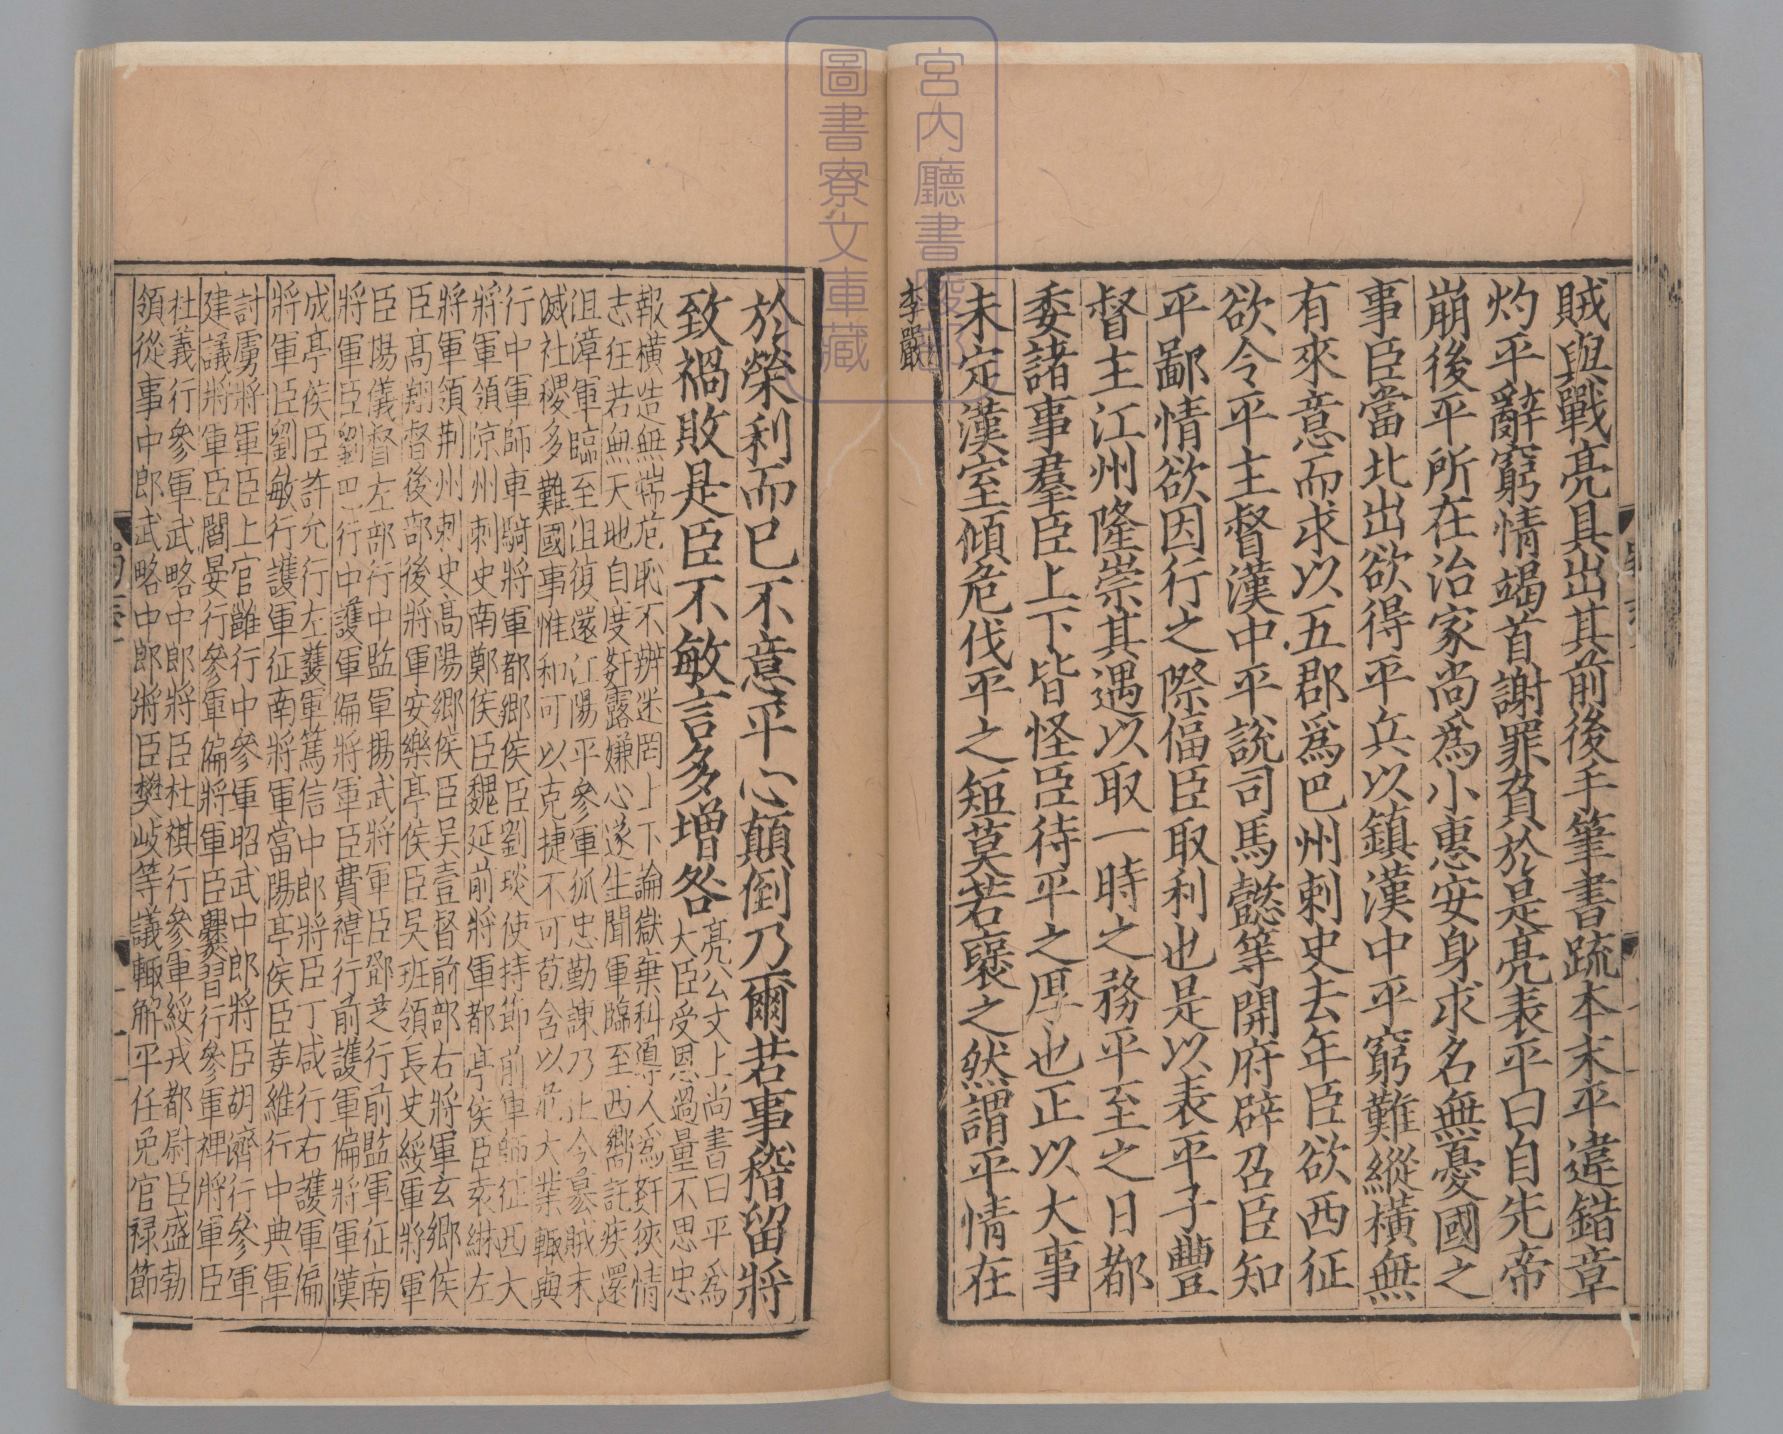 賊與戰亮具出其前後手筆書疏本末平違錯章
灼平辭窮情竭首謝罪負於是亮表平曰自先帝
崩後平所在治家尚爲小惠安身求名無憂國之
事臣當北出欲得平兵以鎮漢中平窮難縱橫無
有來意而求以五郡爲巴州刺史去年臣欲西征
欲令平主督漢中平說司馬懿等開府辟召臣知
平鄙情欲因行之際偪臣取利也是以表平子豐
督主江州隆崇其遇以取一時之務平至之日都
委諸事羣臣上下皆怪臣待平之厚也正以大事
未定漢室傾危伐平之短莫若襃之然謂平情在
李嚴
宮内廳書陵部
圖書寮文庫藏
於榮利而已不意平心顛倒乃爾若事稽留將
致禍敗是臣不敏言多增咎
亮公文上尚書曰平爲
大臣受恩過量不思忠
報橫造無端危恥不辦迷罔上下論獄棄科導人爲姧狹情
志狂若無天地自度姧露嫌心遂生聞軍臨至西嚮託疾還
沮漳軍臨至沮復還江陽平參軍狐忠勤諫乃止今篡賊未
滅社稷多難國事惟和可以克捷不可苞含以危大業輒與
行中軍師車騎將軍都鄉侯臣劉琰使持節前軍師征西大
將軍領涼州刺史南鄭侯臣魏延前將軍都亭侯臣袁綝左
將軍領荆州刺史高陽鄉侯臣吳壹督前部右將軍玄鄉侯
臣高翔督後部後將軍安樂亭侯臣吳班領長史綏軍將軍
臣楊儀督左部行中監軍揚武將軍臣鄧芝行前監軍征南
將軍臣劉巴行中護軍偏將軍臣費禕行前護軍偏將軍漢
成亭侯臣許允行左護軍篤信中郎將臣丁咸行右護軍偏
將軍臣劉敏行護軍征南將軍當陽亭侯臣姜維行中典軍
討虜將軍臣上官雝行中參軍昭武中郎將臣胡濟行參軍
建議將軍臣閻晏行參軍偏將軍臣爨習行參軍裨將軍臣
杜義行參軍武略中郎將臣杜祺行參軍綏戎都尉臣盛勃
領從事中郎武略中郎將臣樊岐等議輒解平任免官祿節